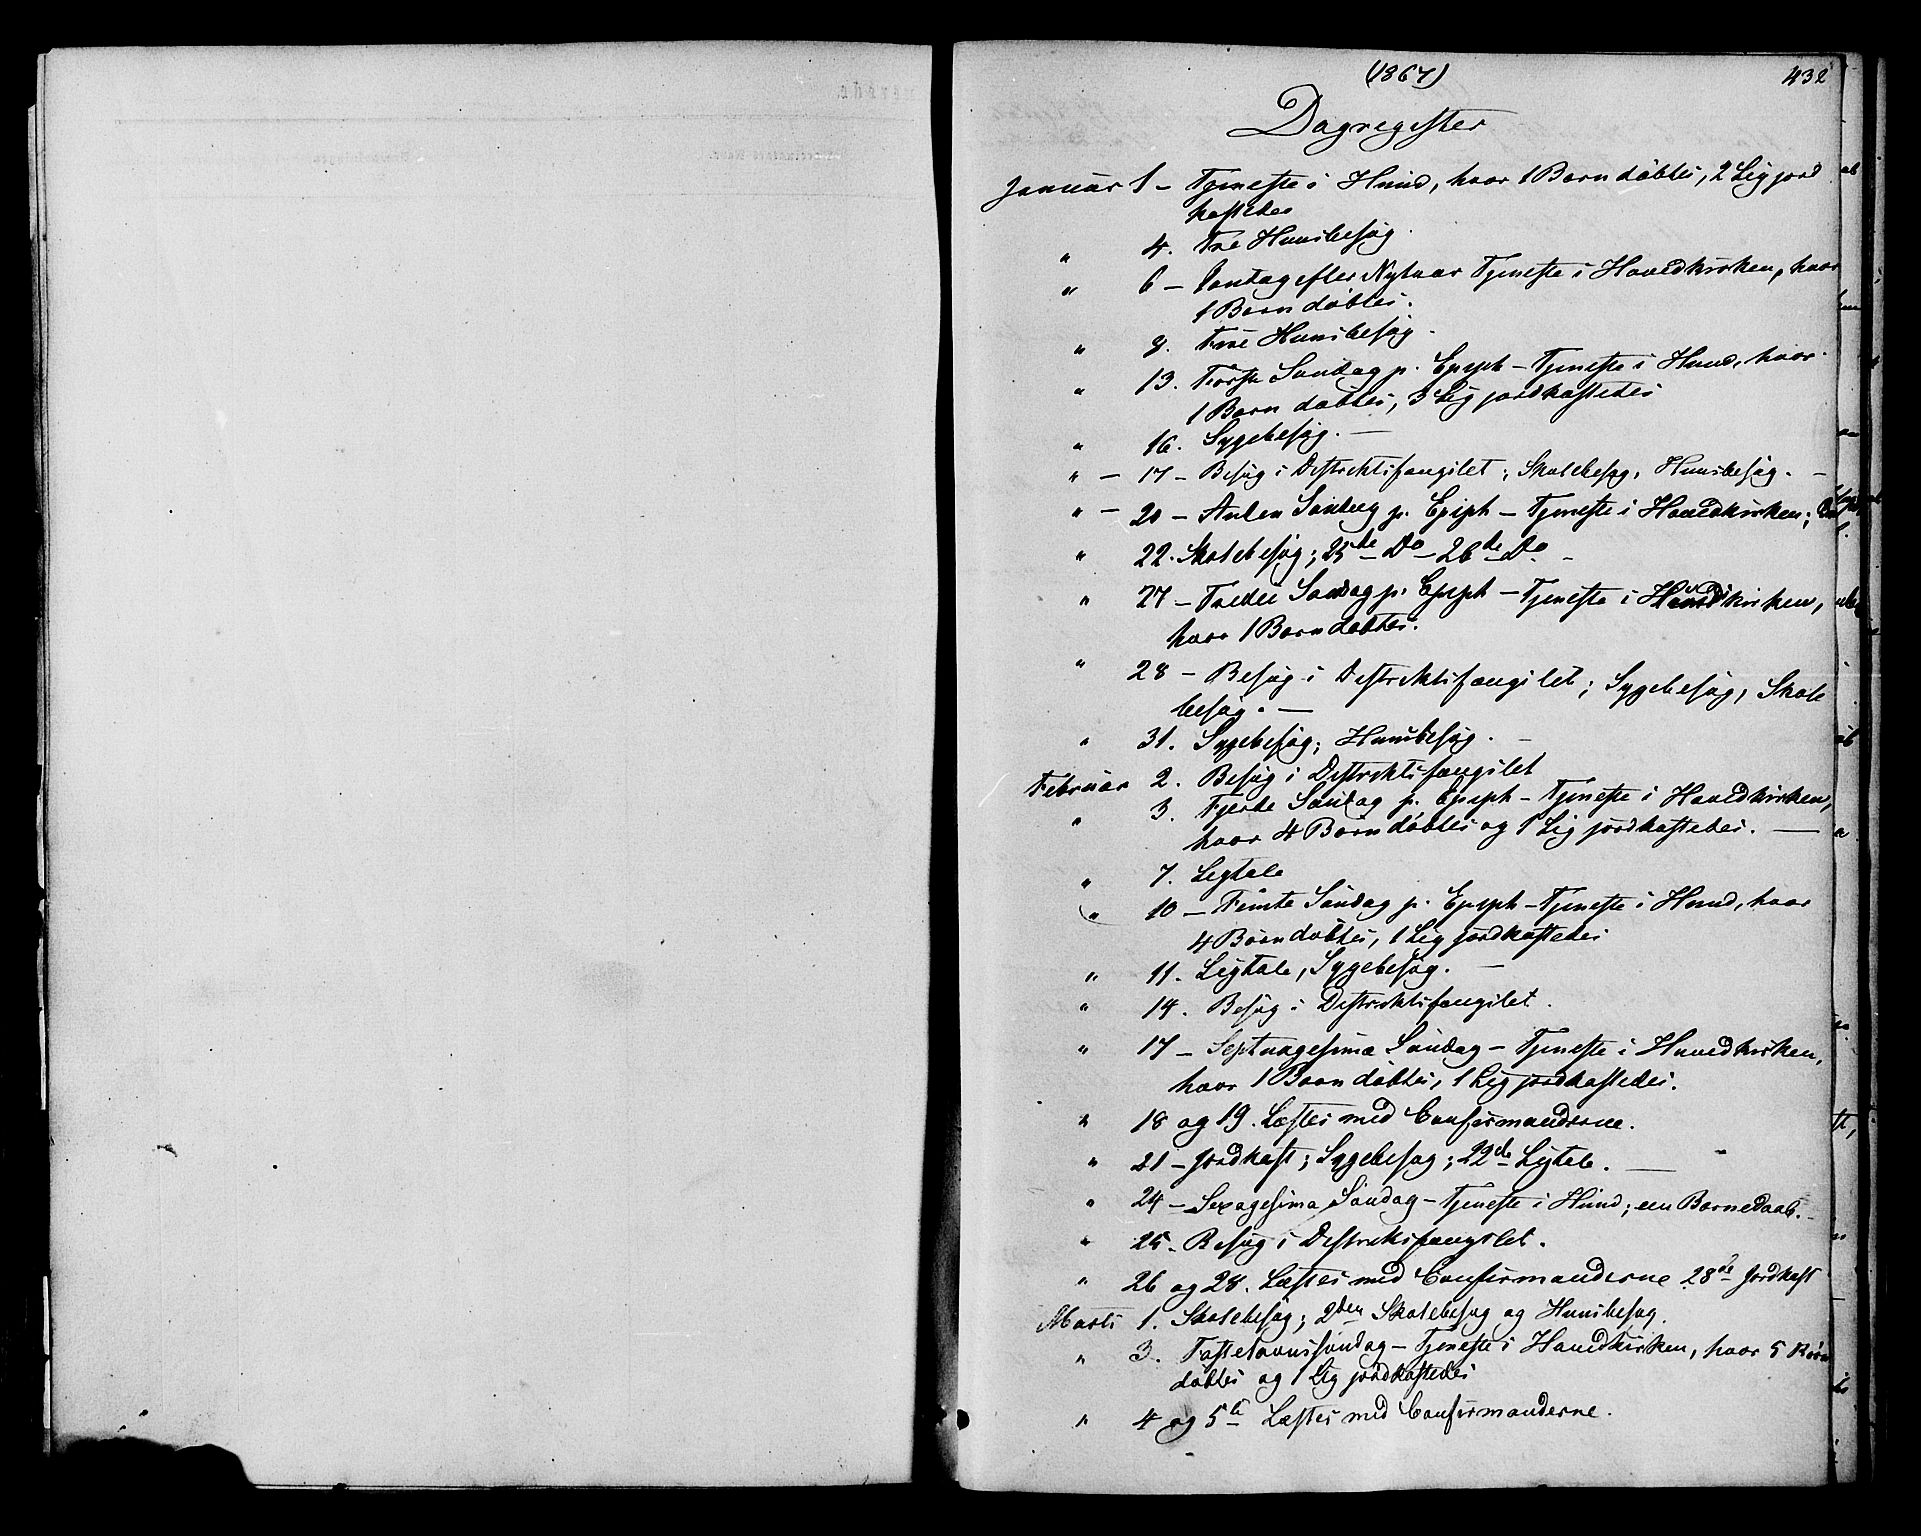 (1867) 432
Dagregister
Januar 1 – Tjeneste i Hund, hvor 1 Barn døbtes, 2 Lig jord
kastedes
" 4. Tre Huusbesøg.
" 6 – Søndag efter Nytaar Tjeneste i Hovedkirken, hvor
1 Barn døbtes.
" 8. Tre Huusbesøg.
" 13. Første Søndag p. Epiph – Tjeneste i Hund, hvor
1 Barn døbtes, 3 Lig jordkastedes
" 16. Sygebesøg. –
" – 17 – Besøg i Distriktsfængslet; Skolebesøg, Huusbesøg. –
" – 20 – Anden Søndag p. Epiph – Tjeneste i Hovedkirken;
" 22. Skolebesøg; 25de – Do – 26de Do –
" 27 – Tredie Søndag p. Epiph – Tjeneste i Hovedkirken,
hvor 1 Barn døbtes.
" 28 – Besøg i Distriktsfængslet; Sygebesøg, Skole
besøg. –
" 31. Sygebesøg; Huusbesøg. –
Februar 2. Besøg i Distriktsfængslet
" 3. Fjerde Søndag p. Epiph – Tjeneste i Hovedkirken,
hvor 4 Børn døbtes og 1 Lig jordkastedes. –
" 7. Ligtale
" 10 – Femte Søndag p. Epiph – Tjeneste i Hund, hvor
4 Børn døbtes, 1 Lig jordkastedes
" 11. Ligtale, Sygebesøg. –
" 14. Besøg i Distriktsfængslet.
" 17 – Septuagesima Søndag – Tjeneste i Hovedkirken,
hvor 1 Barn døbtes, 1 Lig jordkastedes.
" 18 og 19. Læstes med Confirmanderne.
" 21 – Jordkast; Sygebesøg; 22de Ligtale. –
" 24 – Sexagesima Søndag – Tjeneste i Hund; een Barnedaab. –
" 25. Besøg i Distriktsfængslet.
" 26 og 28. Læstes med Confirmanderne 28de Jordkast
Marts 1. Skolebesøg; 2den Skolebesøg og Huusbesøg.
" 3. Fastelavnssøndag – Tjeneste i Hovedkirken, hvor 5 Børn
døbtes og 1 Lig jordkastedes
" 4 og 5te Læstes med Confirmanderne.